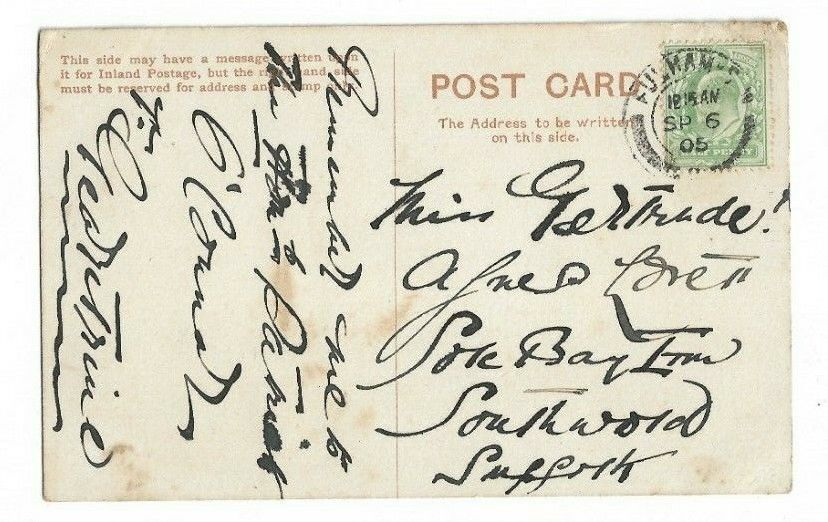 This side may have a message written upon
it for Inland Postage, but the right hand side
must be reserved for address and stamp only.
POST CARD
The Address to be written
on this side.
FULHAM
12.15 AM
SP 6
05
Miss Gertrude
Agnes Brett
Sole Bay Inn
Southwold
Suffolk
Remember me to
The Hon
Patrick
O'Connor
for